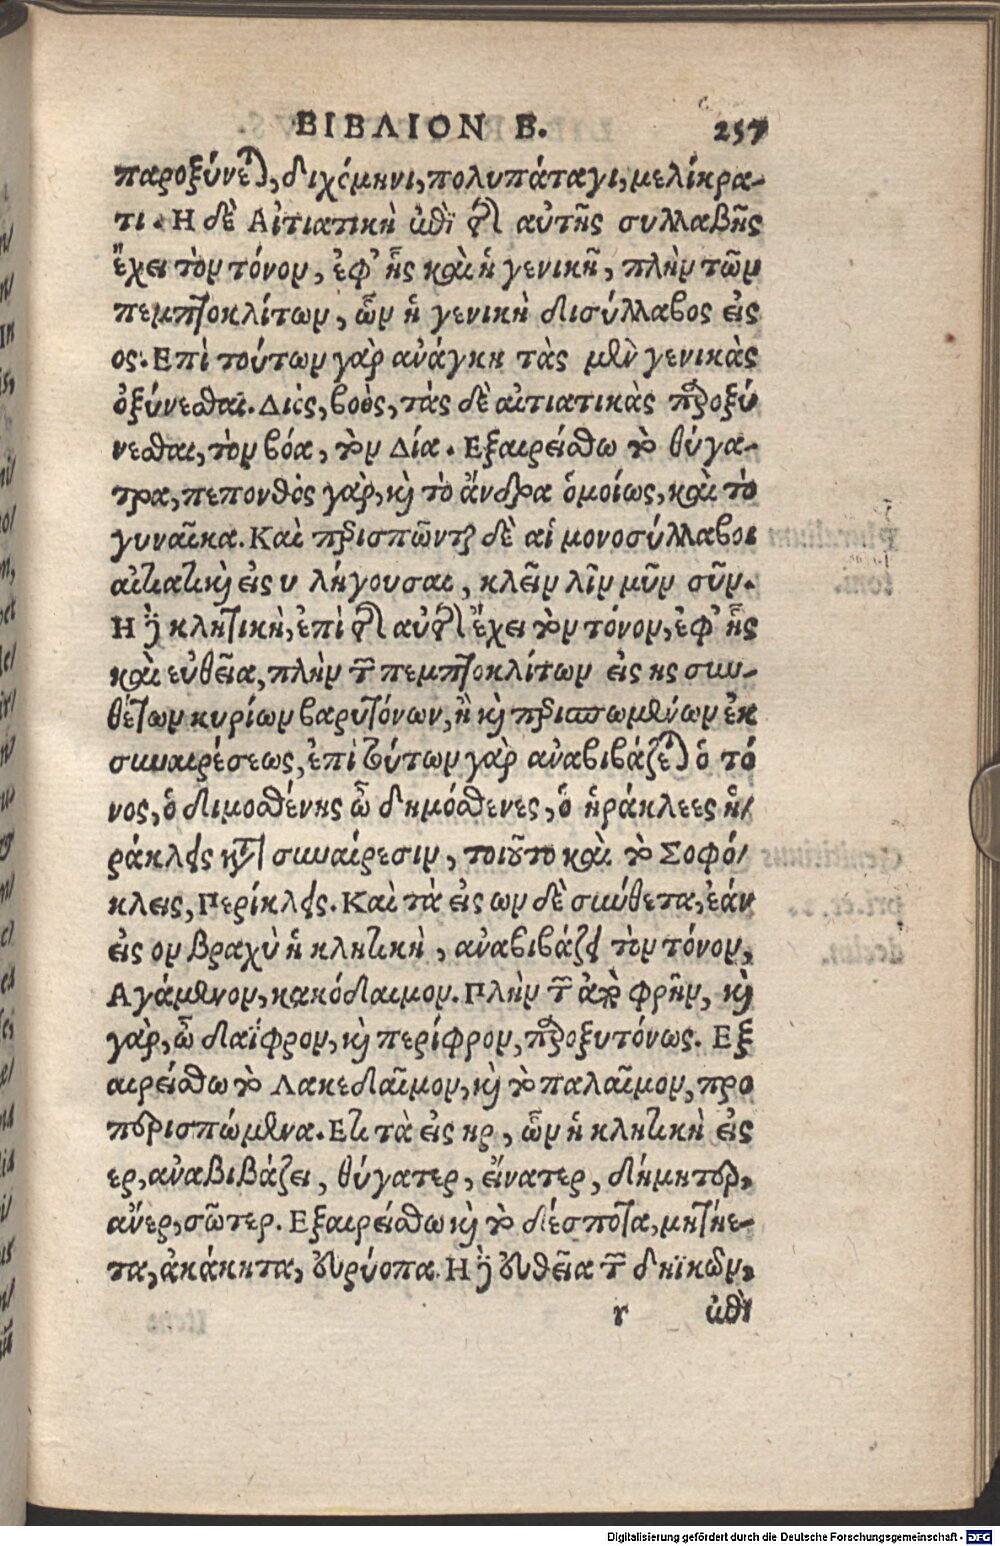 ΒΙΒΛΙΟΝ Β. 257
παροξύνεται, διχόμηνι, πολυπάταγι, μελίκρα-
τι. Η δὲ Αἰτιατικὴ ἐπὶ τῆς αὐτῆς συλλαβῆς
ἔχει τὸν τόνον, ἐφ' ἧς καὶ ἡ γενικῆ, πλὴν τῶν
πεμπτοκλίτων, ὧν ἡ γενικὴ δισύλλαβος εἰς
ος. Επὶ τούτων γὰρ ἀνάγκη τὰς μὲν γενικὰς
ὀξύνεσθαι. Διὸς, βοὸς, τὰς δὲ αἰτιατικὰς παροξύ
νεσθαι, τὸν βόα, τὸν Δία. Εξαιρείσθω τὸ θύγα-
τρα, πεπονθὸς γὰρ, καὶ τὸ ἄνδρα ὁμοίως, καὶ τὸ
γυναῖκα. Καὶ περισπῶνται δὲ αἱ μονοσύλλαβοι
αἰτιατικαὶ εἰς ν λήγουσαι, κλεῖν λῖν μῦν σῦν.
Η δὲ κλητικὴ, ἐπὶ τῆς αὐτῆς ἔχει τὸν τόνον, ἐφ' ἧς
καὶ εὐθεῖα, πλὴν τῶν πεμπτοκλίτων εἰς ης συν-
θέτων κυρίων βαρυτόνων, ἢ καὶ περισπωμένων ἐκ
συναιρέσεως, ἐπὶ τούτων γὰρ ἀναβιβάζεται ὁ τό
νος, ὁ διμοσθένης ὦ δημόσθενες, ὁ ἡράκλεες ἥ/
ράκλεις κατὰ συναίρεσιν, τοιοῦτο καὶ τὸ Σοφό/
κλεις, Περίκλεις. Καὶ τὰ εἰς ων δὲ σύνθετα, ἐάν
εἰς ον βραχὺ ἡ κλητικὴ, ἀναβιβάζει τὸν τόνον,
Αγάμεμνον, κακόδαιμον. Πλὴν τῶν παρὰ φρὴν, καὶ
γὰρ, ὦ δαΐφρον, καὶ περίφρον, παροξυτόνως. Εξ
αιρείσθω τὸ Λακεδαῖμον, καὶ τὸ παλαῖμον, προ
περισπώμενα. Ετι τὰ εἰς ηρ, ὧν ἡ κλητικὴ εἰς
ερ, ἀναβιβάζει, θύγατερ, εἴνατερ, δήμητερ,
ἄνερ, σῶτερ. Εξαιρείσθω καὶ τὸ δέσποτα, μητίε-
τα, ἀκάκητα, εὐρύοπα. Η δὲ εὐθεῖα τῶν δηϊκῶν,
r ἐπὶ
Digitalisierung gefördert durch die Deutsche Forschungsgemeinschaft - DFG